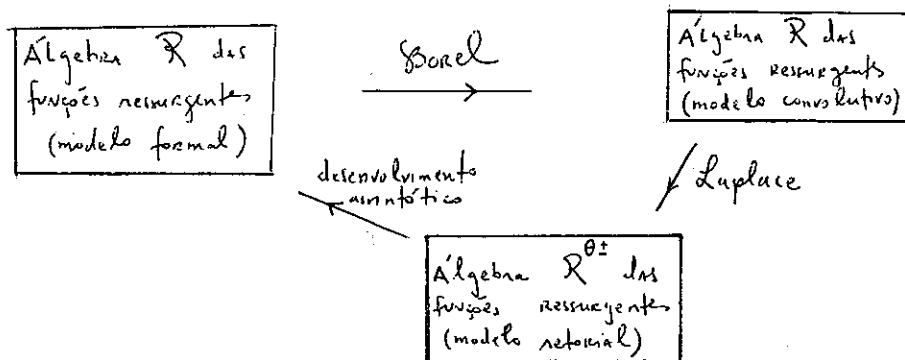 Álgebra R̃ das
funções ressurgentes
(modelo formal)
Borel
Álgebra R das
funções ressurgentes
(modelo convolutivo)
desenvolvimento
assintótico
Laplace
Álgebra R^θ± das
funções ressurgentes
(modelo setorial)